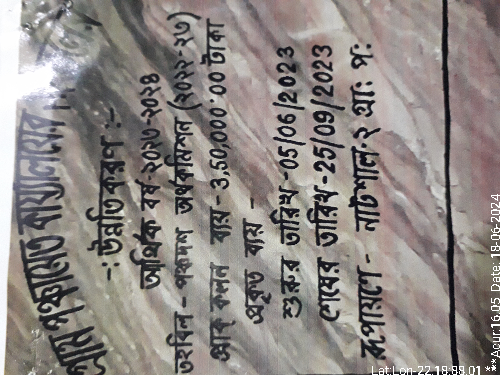 গ্রাম পঞ্চায়েত কার্যালয়ের
-: উন্নতিকরণ :-
আর্থিক বর্ষ-২০২৩-২০২৪
তহবিল - পঞ্চদশ অর্থকমিশন (২০২২-২৩)
প্রাক্ কলন ব্যয় - 3,60,000.00 টাকা
প্রকৃত ব্যয় -
শুরুর তারিখ - 05/06/2023
শেষের তারিখ - 25/09/2023
রূপায়ণে - নাটশাল-২ গ্রাঃ পঃ
Date: 18-06-2024
Lat Lon-22.18:88.01